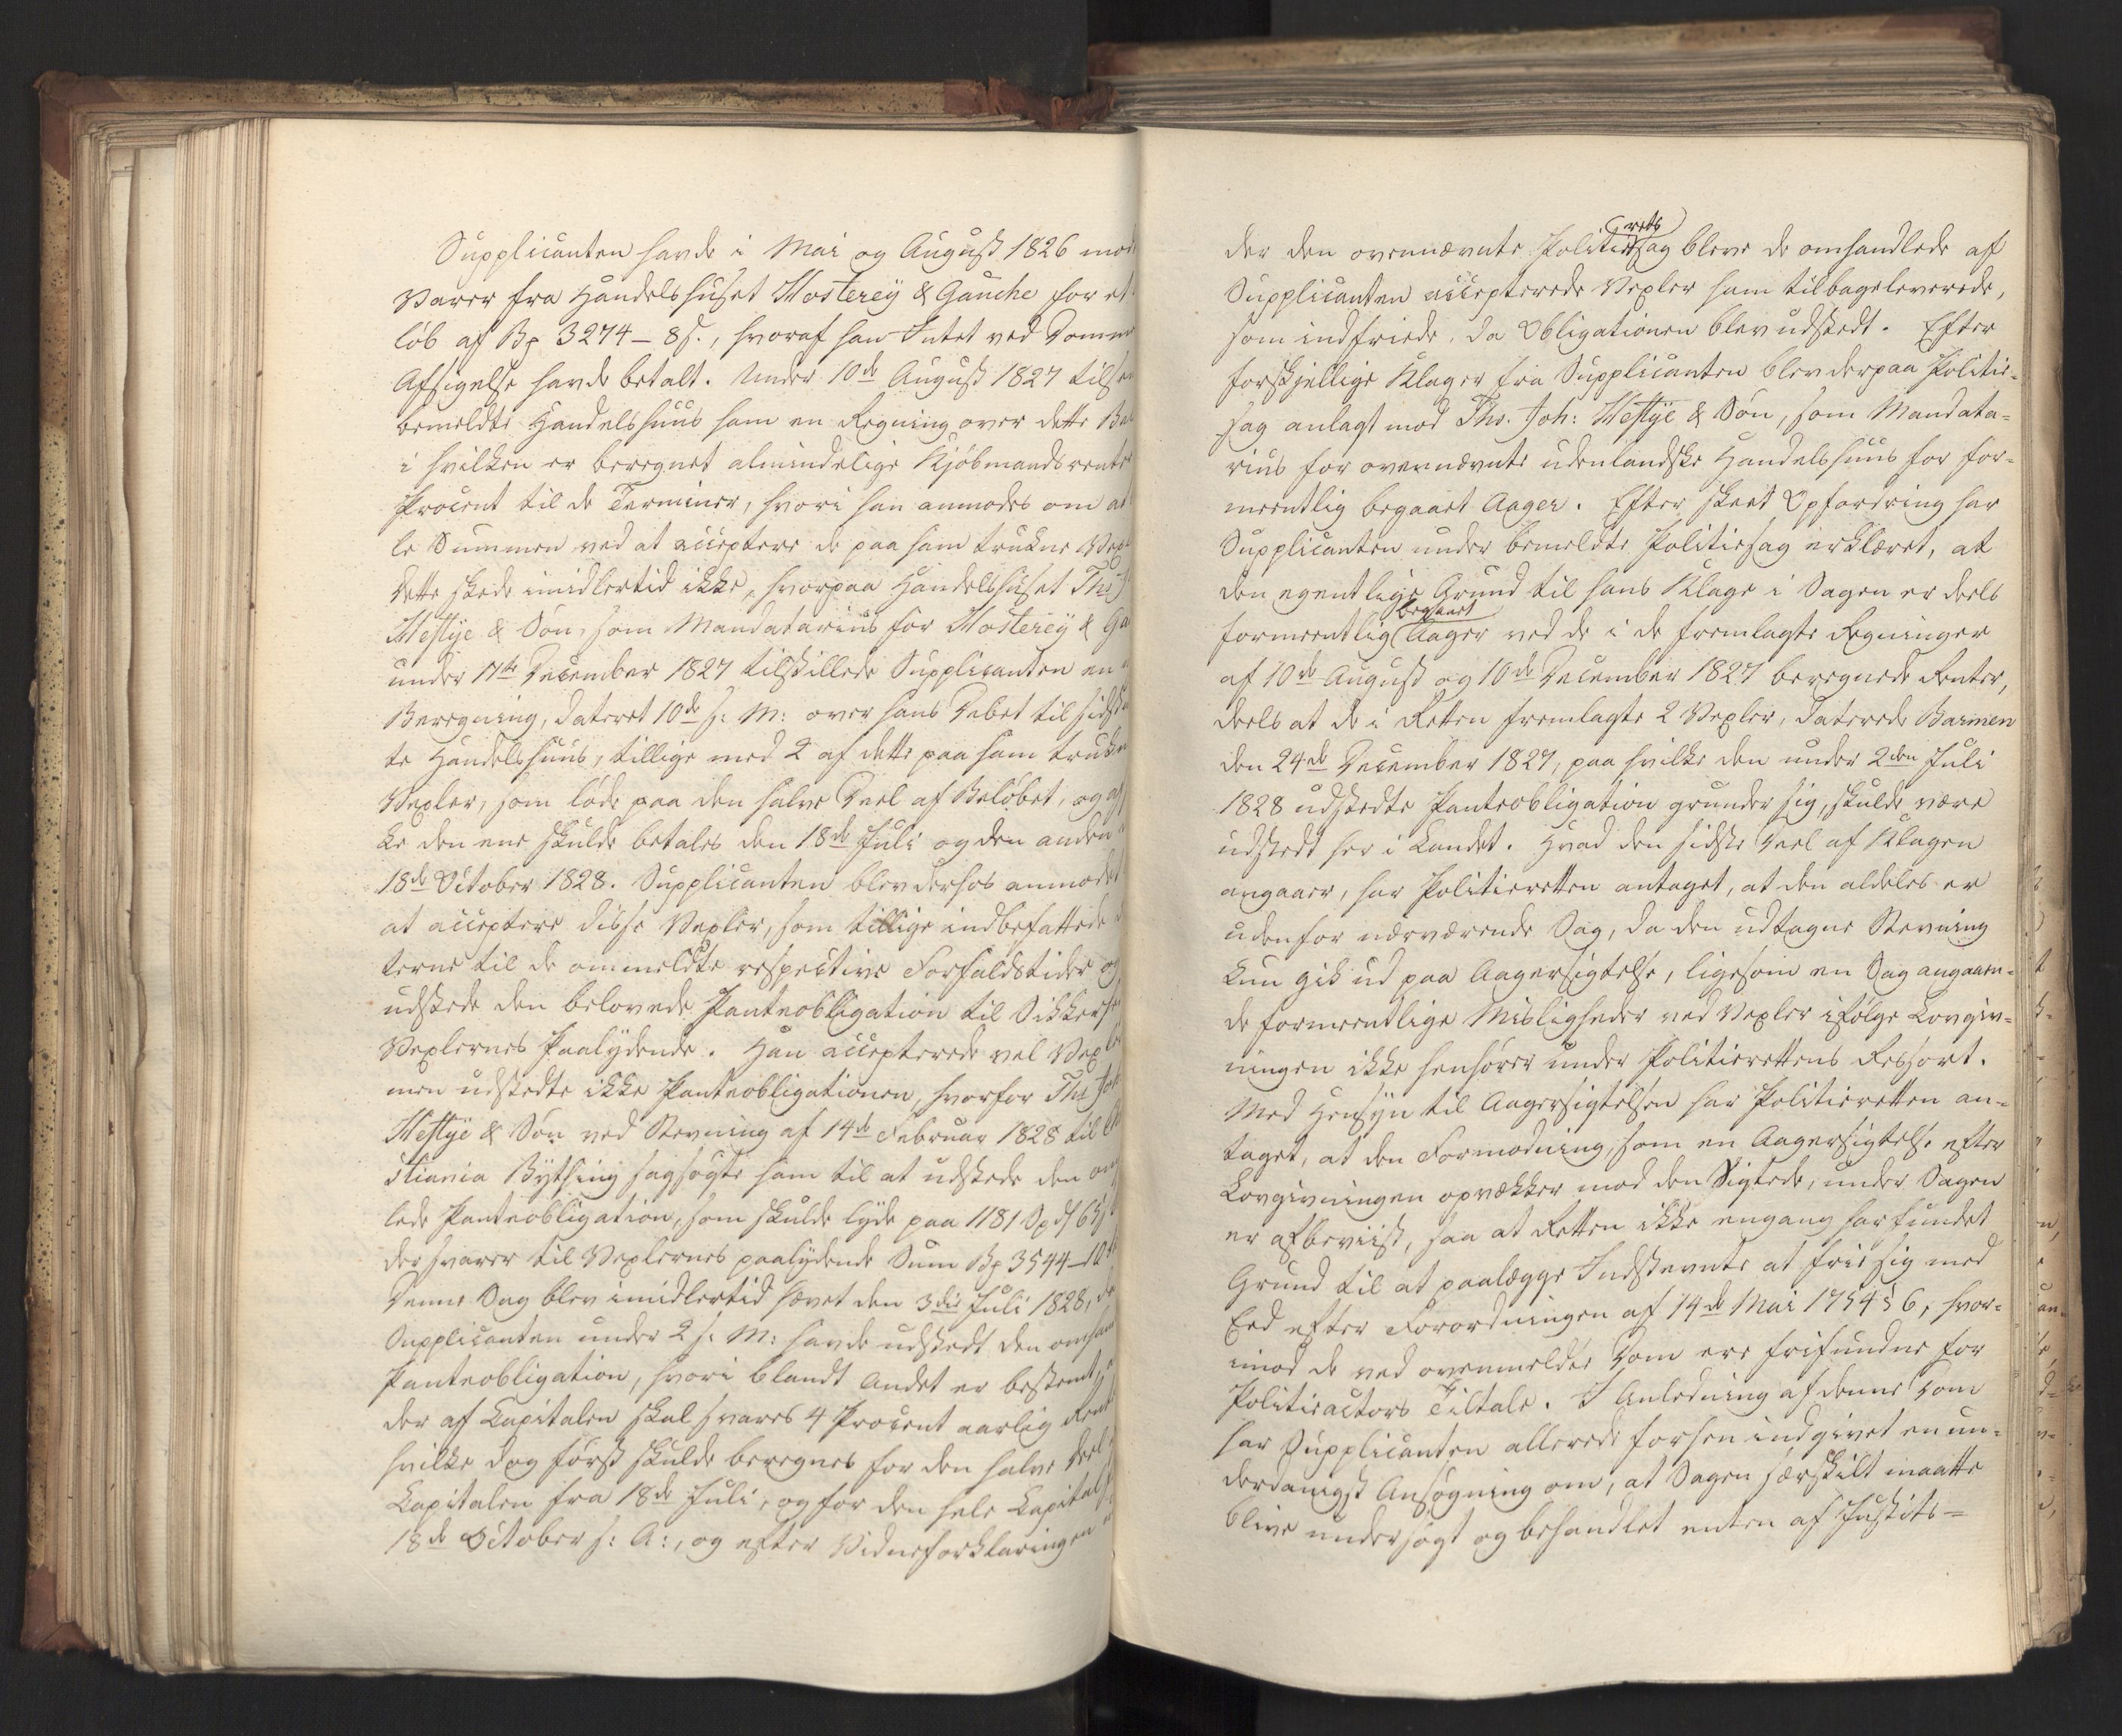 Supplicanten havde i Mai og August 1826 mod
Varer fra Handelshuset Mosterey & Gauche for et
løb af Bp 3274 - 8 s., hvoraf han Intet ved Dommens
Afsigelse havde betalt. Under 10de August 1827 tilsen
bemeldte Handelshuus ham en Regning over dette Bel
i hvilken er beregnet almindelige Kjøbmandsrenter
Procent til de Terminer, hvori han anmodes om at
le Summen ved at acceptere de paa ham trukne Vex
Dette skede imidlertid ikke, hvorpaa Handelshuset Ths J
Heftÿe & Søn, som Mandatarius for Mosterey & Ga
under 17de December 1827 tilstillede Supplicanten en
Beregning, dateret 10de s: M: over hans Debet til sidst
te Handelshuus, tillige med 2 af dette paa ham trukn
Vexler, som løde paa den halve Deel af Beløbet, og af
ke den ene skulde betales den 18de Juli og den anden
18de October 1828. Supplicanten blev derhos anmodet
at acceptere disse Vexler, som tillige indbefattede
terne til de ommeldte respective Forfaldstider og
udstede den belovede Panteobligation til Sikkerhe
Vexlernes Paalydende. Han accepterede vel Vexle
men udstedte ikke Panteobligationen, hvorfor Ths Joh
Heftÿe & Søn ved Stevning af 14de Februar 1828 til Ch
stiania Bything sagsøgte ham til at udstede den om
lede Panteobligation, som skulde lyde paa 1181 Spd 63
der svarer til Vexlernes paalydende Sum Bp 3544 - 10
Denne Sag blev imidlertid hævet den 3die Juli 1828, da
Supplicanten under 2 s: M: havde udstedt den omhan
Panteobligation, hvori blandt Andet er bestemt,
der af Capitalen skal svares 4 Procent aarlig Rent
hvilke dog først skulde beregnes for den halve Deel
Capitalen fra 18de Juli, og for den hele Capital
18de October s: A:, og efter Vidneforklaringen
der den ovennævnte Politie(rets)sag bleve de omhandlede af
Supplicanten accepterede Vexler ham tilbageleverede,
som indfriede, da Obligationen blev udstedt. Efter
forskjellige Klager fra Supplicanten blev derpaa Politie-
sag anlagt mod Ths. Joh: Heftÿe & Søn, som Mandata=
rius for ovennævnte udenlandske Handelshuus for for=
meentlig begaaet Aager. Efter skeet Opfordring har
Supplicanten under bemeldte Politiesag erklæret, at
den egentlige Grund til hans Klage i Sagen er deels
formeentlig (begaaet) Aager ved de i de fremlagte Regninger
af 10de August og 10de December 1827 beregnede Renter,
deels at de i Retten fremlagte 2 Vexler, daterede Barmen
den 24de December 1827, paa hvilke den under 2den Juli
1828 udstedte Panteobligation grunder sig, skulde være
udstedt her i Landet. Hvad den sidste Deel af Klagen
angaaer, har Politieretten antaget, at den aldeles er
udenfor nærværende Sag, da den udtagne Stevning
kun gik ud paa Aagersigtelse, ligesom en Sag angaaen-
de formeentlige Misligheder ved Vexler ifølge Lovgiv=
ningen ikke henhører under Politierettens Ressort.
Med Hensyn til Aagersigtelsen har Politieretten an-
taget, at den Formodning, som en Aagersigtelse efter
Lovgivningen opvækker mod den Sigtede, under Sagen
er afbeviist, saa at Retten ikke engang har fundet
Grund til at paalægge Indstevnte at frie sig med
Eed efter Forordningen af 14de Mai 1754 § 6, hvor=
imod de ved ovenmeldte Dom ere frifundne for
Politieactors Tiltale. I Anledning af denne Dom
har Supplicanten allerede forhen indgivet en un=
derdanigst Ansøgning om, at Sagen særskilt maatte
blive undersøgt og behandlet enten af Justits=